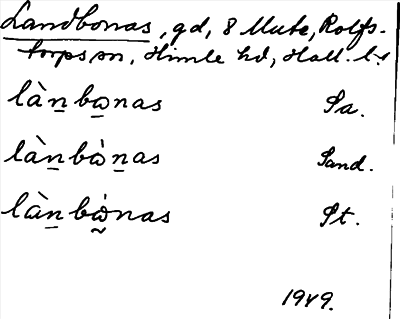 Landbonas, gd, 8 Mute, Rolfs-
torps sn, Himle hd, Hall. l.
làn̲bo̲nas Sa.
làn̲bòn̲as Sand.
làn̲bò̲nas St.
1949.